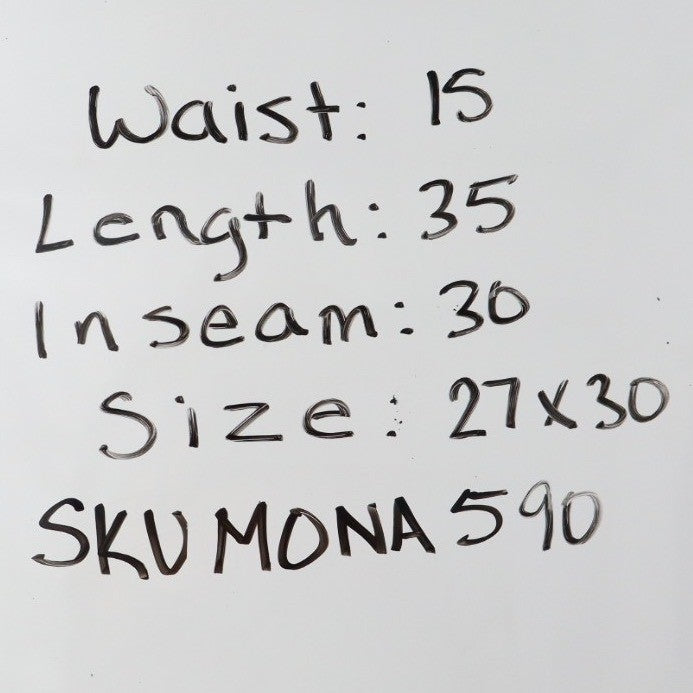 Waist: 15
Length: 35
Inseam: 30
Size: 27x30
SKU MONA 590